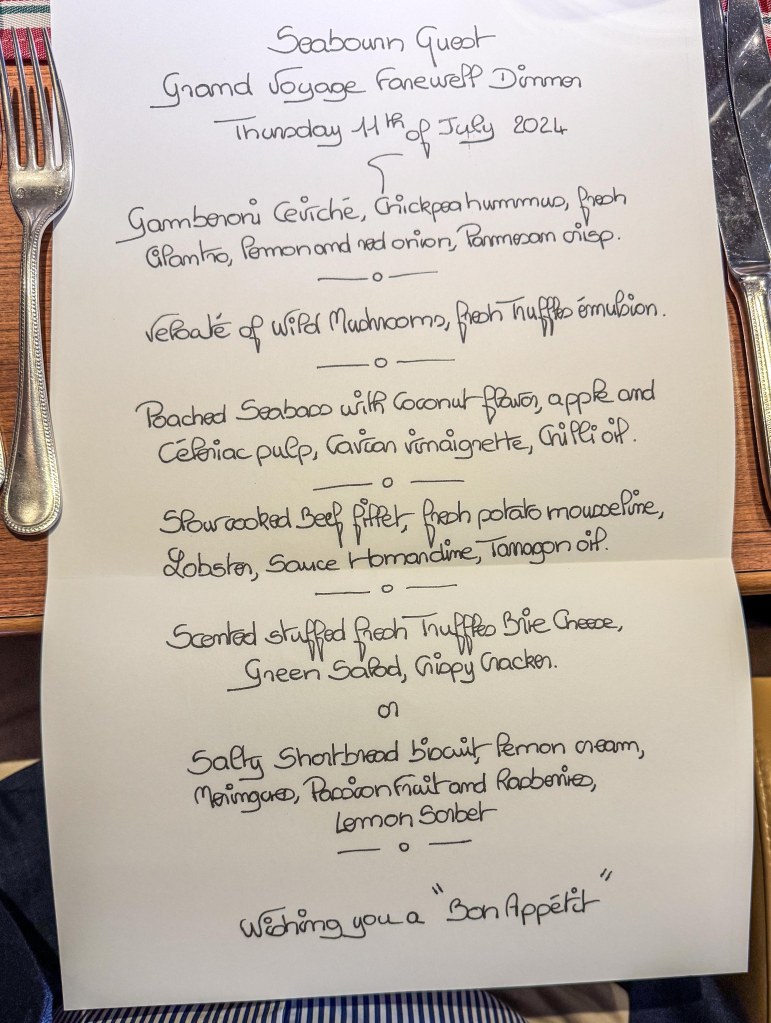 Seabourn Quest
Grand Voyage Farewell Dinner
Thursday 11th of July 2024
Gamberoni Céviché, Chickpea hummus, fresh
Cilantro, Lemon and red onion, Parmesan crisp.
Velouté of Wild Mushrooms, fresh Truffles émulsion.
Poached Seabass with Coconut flavor, apple and
Céleriac pulp, Caviar vinaigrette, Chilli oil.
Slow cooked Beef fillet, fresh potato mousseline,
Lobster, Sauce Homardine, Tarragon oil.
Scented stuffed fresh Truffles Brie Cheese,
Green Salad, Crispy Cracker.
or
Salty Shortbread biscuit, Lemon cream,
Meringues, Passion Fruit and Rasberries,
Lemon Sorbet
Wishing you a "Bon Appétit"